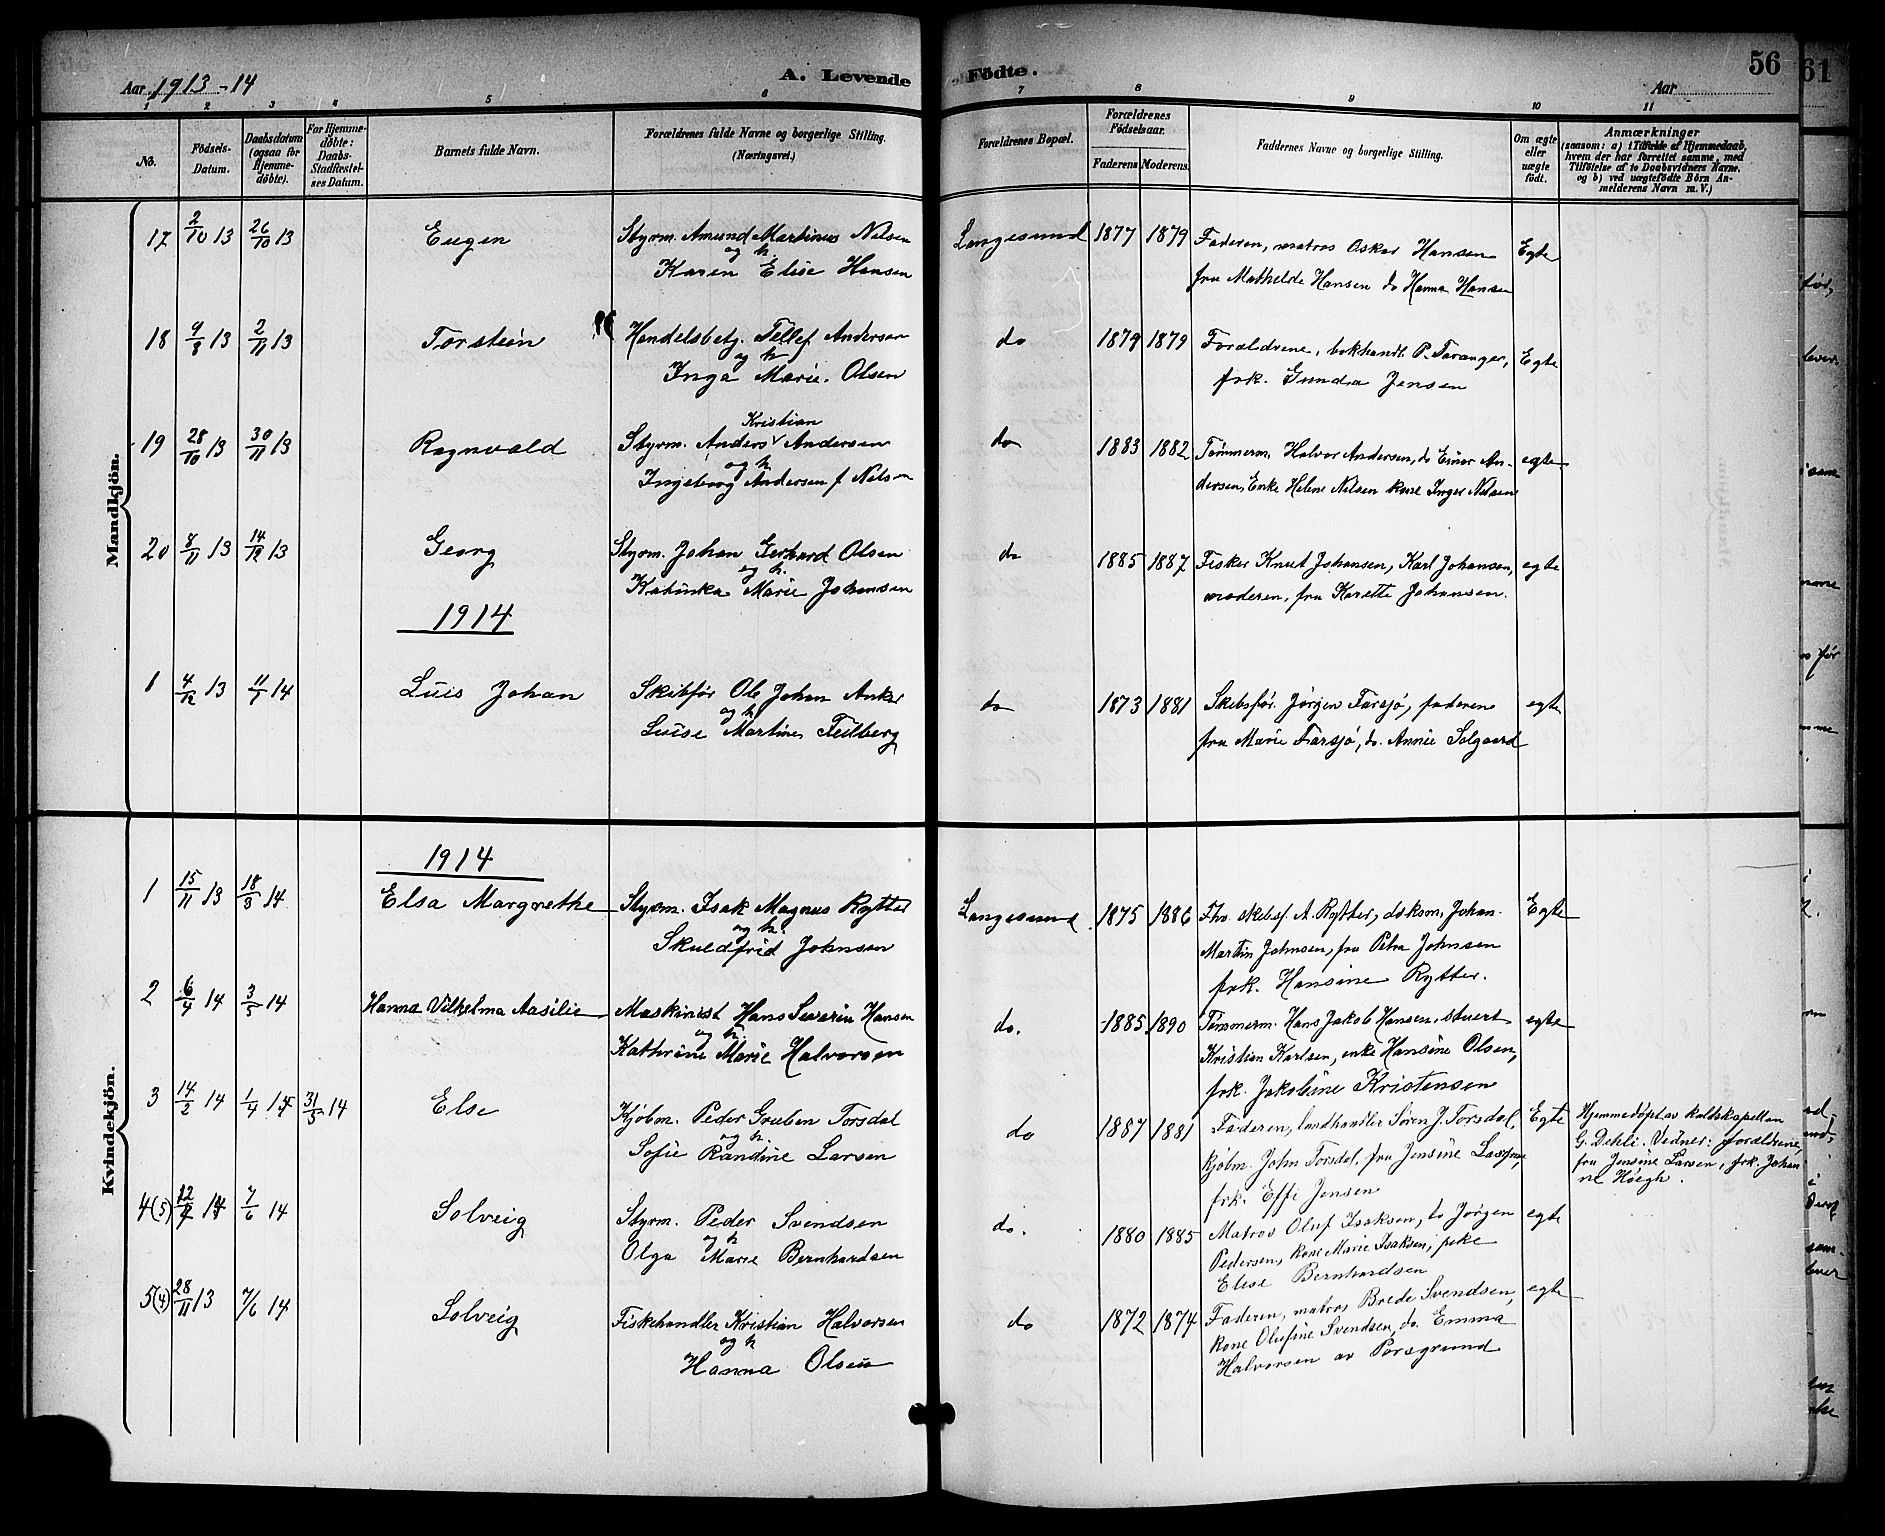 Aar 1913-14
A. Levende Födte.
Aar
56
61
1 2 3 4 5 6 7 8 9 10 11
No.
Födsels-Datum.
Daabsdatum (ogsaa for Hjemme-döbte).
For Hjemme-döbte: Daabs-Stadfæstel-ses Datum.
Barnets fulde Navn.
Forældrenes fulde Navne og borgerlige Stilling. (Næringsvei.)
Forældrenes Bopæl.
Forældrenes Födselsaar.
Faderens Moderens.
Faddernes Navne og borgerlige Stilling.
Om ægte eller uægte födt.
Anmærkninger
(saasom: a) i Tilfælde af Hjemmedaab,
hvem der har forrettet samme, med
Tilföielse af to Daabsvidners Navne,
og b) ved uægtefödte Börn An-
melderens Navn m. V.)
Mandkjön.
17 2/10 13 26/10 13 Eugen Styrm. Amund Martinus Nilsen Langesund 1877 1879 Faderen, matros Oskar Hansen Egte
og h.
Karen Elise Hansen fru Mathilde Hansen do Hanna Hansen
18 9/8 13 2/11 13 Torstein Handelsbetj. Tellef Andersen do 1879 1879 Forældrene, bokhandl. P. Taranger, Egte
og h
Inga Marie Olsen frk. Gunda Jensen
19 28/10 13 30/11 13 Ragnvald Styrm. Anders Kristian Andersen do 1883 1882 Tømmerm. Halvor Andersen, do Einar An- egte
og h
Ingeborg Andersen f. Nilsen dersen, Enke Helene Nilsen kone Inger Nilsen
20 8/11 13 14/12 13 Georg Styrm. Johan Gerhard Olsen do 1885 1887 Fisker Knut Johansen, Karl Johansen, egte
og h.
Katinka Marie Johansen moderen, fru Karette Johansen.
1914
1 4/12 13 11/1 14 Luis Johan Skibsfør Ole Johan Anker do 1873 1881 Skibsfør. Jørgen Farsjø, faderen egte
og h
Luise Martine Feilberg fru Marie Farsjø, do. Annie Solgaard
Kvindekjön.
1914
1 15/11 13 18/3 14 Elsa Margrethe Styrm. Isak Magnus Rytter Langesund 1875 1886 Fhv. skibsf. A. Rytter, deksm. Johan Egte
og h.
Skuldfrid Johnsen Martin Johnsen, fru Petra Johnsen
frk. Hansine Rytter.
2 6/4 14 3/5 14 Hanna Vilhelma Aasilie Maskinist Hans Severin Hansen do. 1885 1890 Tømmerm. Hans Jakob Hansen, stuert egte
og h.
Kathrine Marie Halvorsen Kristian Karlsen, enke Hansine Olsen,
frk. Jakobine Kristensen
3 14/2 14 1/4 14 31/5 14 Else Kjøbm. Peder Gruben Torsdal do 1887 1881 Faderen, landhandler Søren J. Torsdal, Egte Hjemmedøpt av kaldskapellan
og h.
Sofie Randine Larsen kjøbm. John Torsdal, fru Jensine Larsen, G. Dehli. Vidner: forældrene,
frk. Effi Jensen fru Jensine Larsen, frk. Johan
ne Høegh.
4(5) 14 7/6 14 Solveig Styrm. Peder Svendsen do. 1880 1885 Matros Oluf Isaksen, do Jørgen egte
og h
Olga Marie Bernhardsen Pedersen, kone Marie Isaksen, pike
Elise Bernhardsen
5(4) 28/11 13 7/6 14 Solveig Fiskehandler Kristian Halvorsen do 1872 1874 Faderen, matros Brede Svendsen, egte
og h
Hanna Olsen kone Olufine Svendsen, do. Emma
Halvorsen av Porsgrund